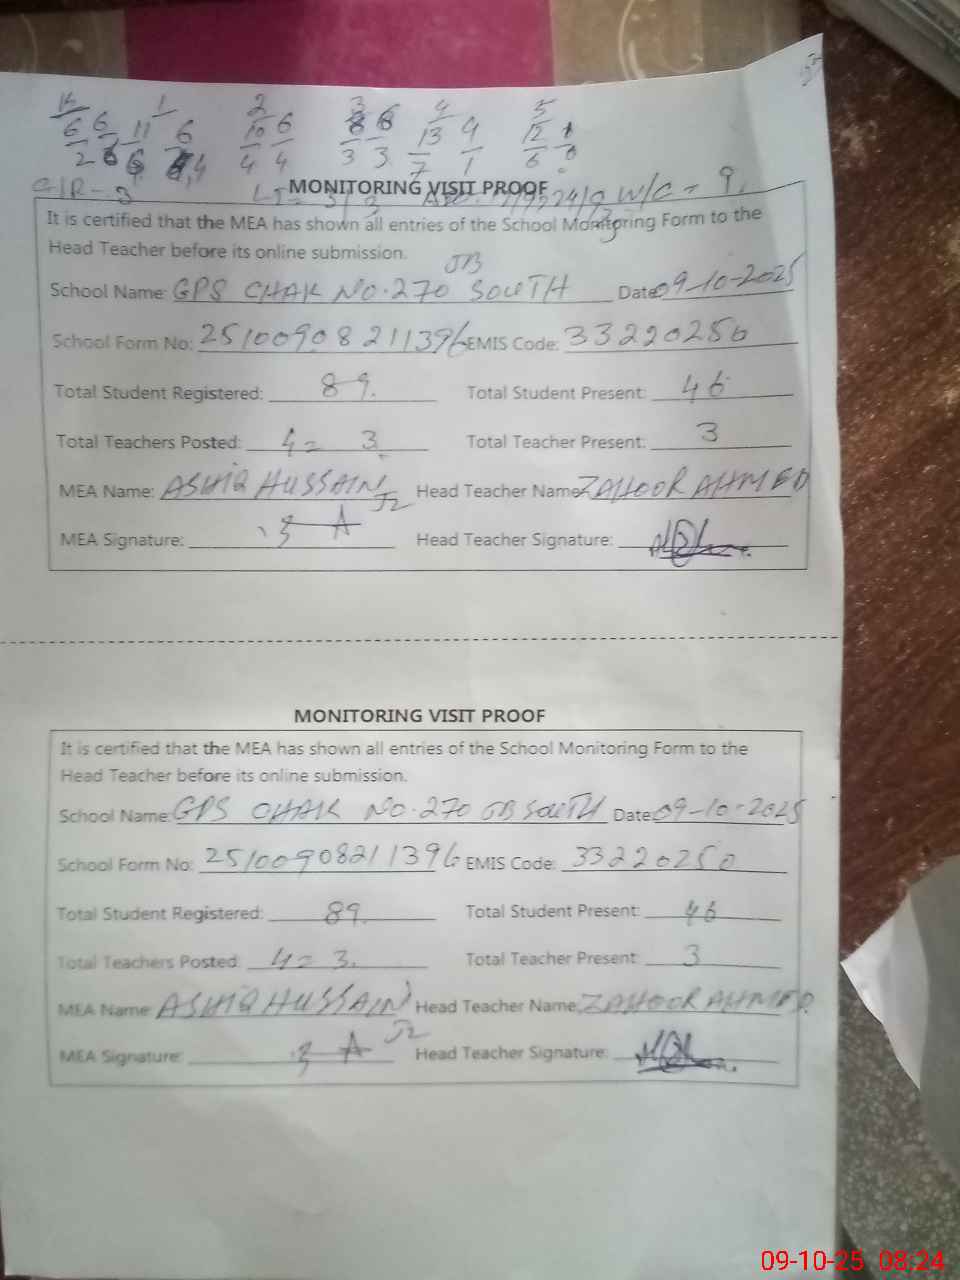 K 1 2 3 4 5
6 6 11 6 10 6 8 6 13 9 12 1
2 6 4 4 4 3 3 7 1 6 0
G/R - 3 W/C - 9
MONITORING VISIT PROOF
It is certified that the MEA has shown all entries of the School Monitoring Form to the
Head Teacher before its online submission.
School Name: GPS CHAK NO. 270 JB SOUTH Date: 09-10-2025
School Form No: 25100908211396 EMIS Code: 33220250
Total Student Registered: 89. Total Student Present: 46
Total Teachers Posted: 4 = 3. Total Teacher Present: 3
MEA Name: ASHIQ HUSSAIN Head Teacher Name: ZAHOOR AHMED
MEA Signature: Head Teacher Signature:
MONITORING VISIT PROOF
It is certified that the MEA has shown all entries of the School Monitoring Form to the
Head Teacher before its online submission.
School Name: GPS CHAK NO. 270 JB SOUTH Date: 09-10-2025
School Form No: 25100908211396 EMIS Code: 33220250
Total Student Registered: 89. Total Student Present: 46
Total Teachers Posted: 4 = 3. Total Teacher Present: 3
MEA Name: ASHIQ HUSSAIN Head Teacher Name: ZAHOOR AHMED
MEA Signature: Head Teacher Signature:
09-10-25 08:24